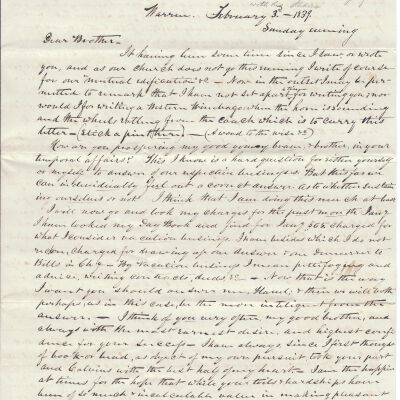 Warren February 3d — 1839.
Sunday evening
Dear Brother —
It having been some time since I saw or wrote
you, and as our church does not go this evening I write of course
for our mutual edification &c — Now in the outset I may be per-
mitted to remark that I am not set apart for writing you; nor
would I for writing a Western Windbag when the horn is sounding
and the wheels rolling from the coach which is to carry this
letter — (stick a pin there) — (a word to the wise &c)
How are you prospering my good young brother, in your
temporal affairs? This I know is a hard question for either yourself
or myself to answer of our respective business. But this far we
can individually feel out a correct answer as to whether
ourselves or not. I think that I am doing this much at least
I will now go and book my charges for the past month Jany
I have looked my Day Book and find for Jany 50$ charged for
what I consider vacation business. I have besides which I do not
charged for drawing up our answer one Demurrer to
Bills in Ch'y — By vacation business I mean pettifogging and
advice, writing contracts, deeds &c — Now that is the way
I want you should answer me, Hand, & then we will both
perhaps, as in this case, be the more intelligent from the
answer. — I think of you very often my good brother, and
always with the most earnest desire, and highest confi-
dence for your success — I have always since I first thought
of book or head, as object of my own pursuit took your part
and Calvins with the best half of my heart — I am the happier
at times for the hope that while your toils & hardships have
been of so much & incalculable value in making pleasant